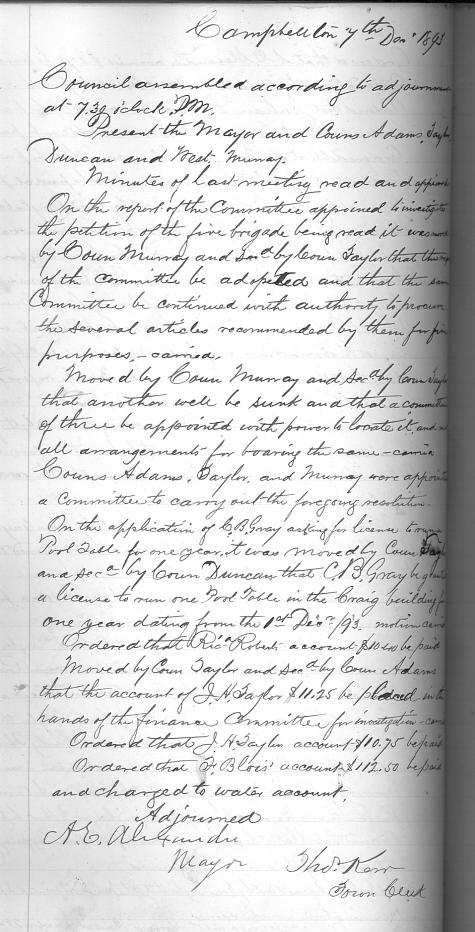 Campbellton 7th Decr 1893
Council assembled according to adjournm
at 7.30 o'clock P.M.
Present the Mayor and Couns Adams, Taylor,
Duncan and West, Murray.
Minutes of last meeting read and approved
On the report of the Committee appoined to investigate
the petition of the fire brigade being read it was moved
by Coun Murray and Secd by Coun Taylor that the
of the committee be adopted and that the same
Committee be continued with authority to procure
the several articles recommended by them for fire
purposes, – carried.
Moved by Coun Murray and Secd by Coun Taylor
that another well be sunk and that a committee
of three be appointed with power to locate it, and
all arrangements for boaring the same – carried
Couns Adams, Taylor, and Murray were appointed
a Committee to carry out the foregoing resolution.
On the application of C.B. Gray asking for license to run a
Pool Table for one year, it was moved by Coun Taylor
and Secd by Coun Duncan that C.B. Gray be granted
a license to run one Pool Table in the Craig building for
one year dating from the 1st Decr /93. motion carried
Ordered that Ricd Roberts account be paid
Moved by Coun Taylor and Secd by Coun Adams
that the account of J.H. Taylor $11.25 be placed in the
hands of the finance Committee for investigation – carried
Ordered that J.H. Taylor account $10.75 be paid
Ordered that F. Blois' account $112.50 be paid
and charged to water account.
Adjourned
A.E. Alexander
Mayor
Thos. Kerr
Town Clerk